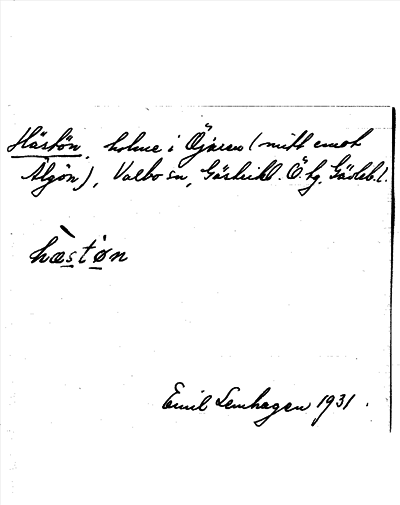 Hästön, holme i Öjaren (mitt emot
Älgön), Valbo sn, Gästrikl. Ö. tg. Gävleb. l.
hæstøn
Emil Lenhagen 1931.